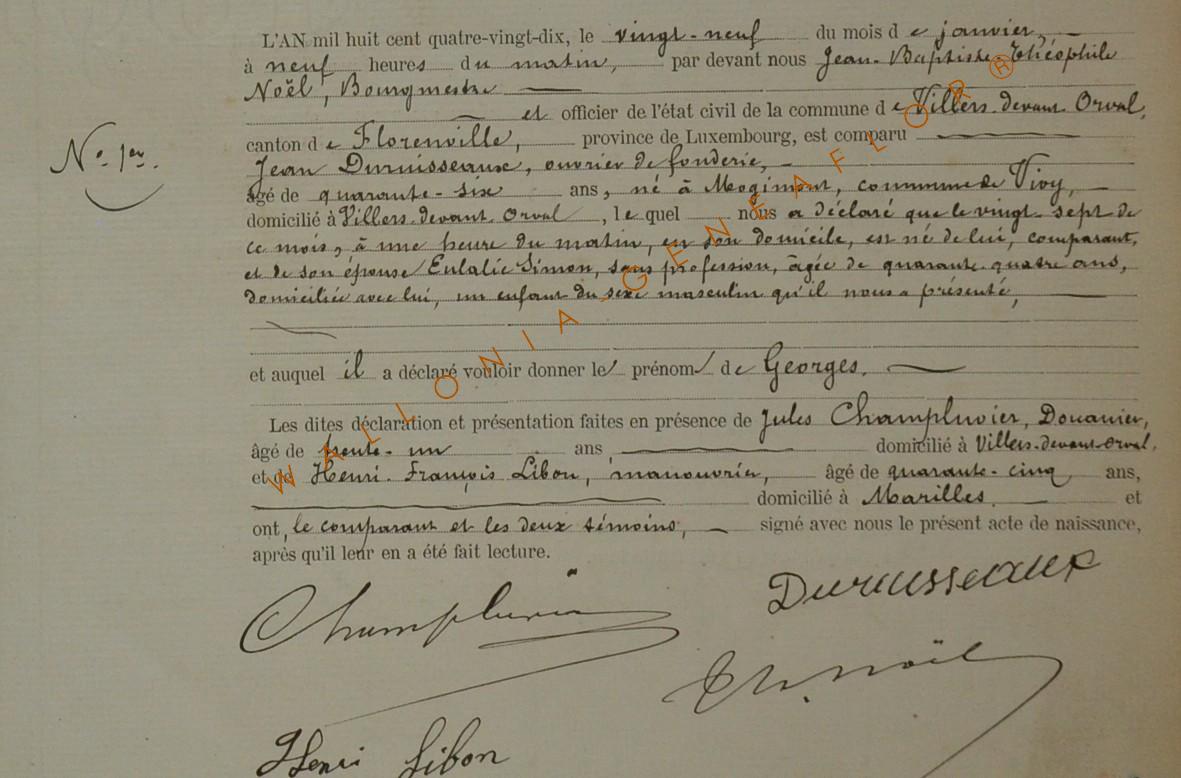 L'AN mil huit cent quatre-vingt-dix, le vingt-neuf du mois de janvier,
à neuf heures du matin, par devant nous Jean-Baptiste Théophile
Noël, Bourgmestre
et officier de l'état civil de la commune de Villers-devant-Orval,
N° 1er.
canton de Florenville, province de Luxembourg, est comparu
Jean Duruisseaux, ouvrier de fonderie,
âgé de quarante-six ans, né à Mogimont, commune de Vivy,
domicilié à Villers-devant-Orval, lequel nous a déclaré que le vingt-sept de
ce mois, à une heure du matin, en son domicile, est né de lui, comparant,
et de son épouse Eulalie Simon, sans profession, âgée de quarante-quatre ans,
domiciliée avec lui, un enfant du sexe masculin qu'il nous a présenté,
et auquel il a déclaré vouloir donner le prénom de Georges.
Les dites déclaration et présentation faites en présence de Jules Champluvier, Douanier,
âgé de trente-un ans domicilié à Villers-devant-Orval.
et de Henri-François Libon, manouvrier, âgé de quarante-cinq ans,
domicilié à Marilles et
ont, le comparant et les deux témoins, signé avec nous le présent acte de naissance,
après qu'il leur en a été fait lecture.
Champluvier
Duruisseaux
Th. Noël
Henri Libon
WALLONIA-GENEAFLOR®